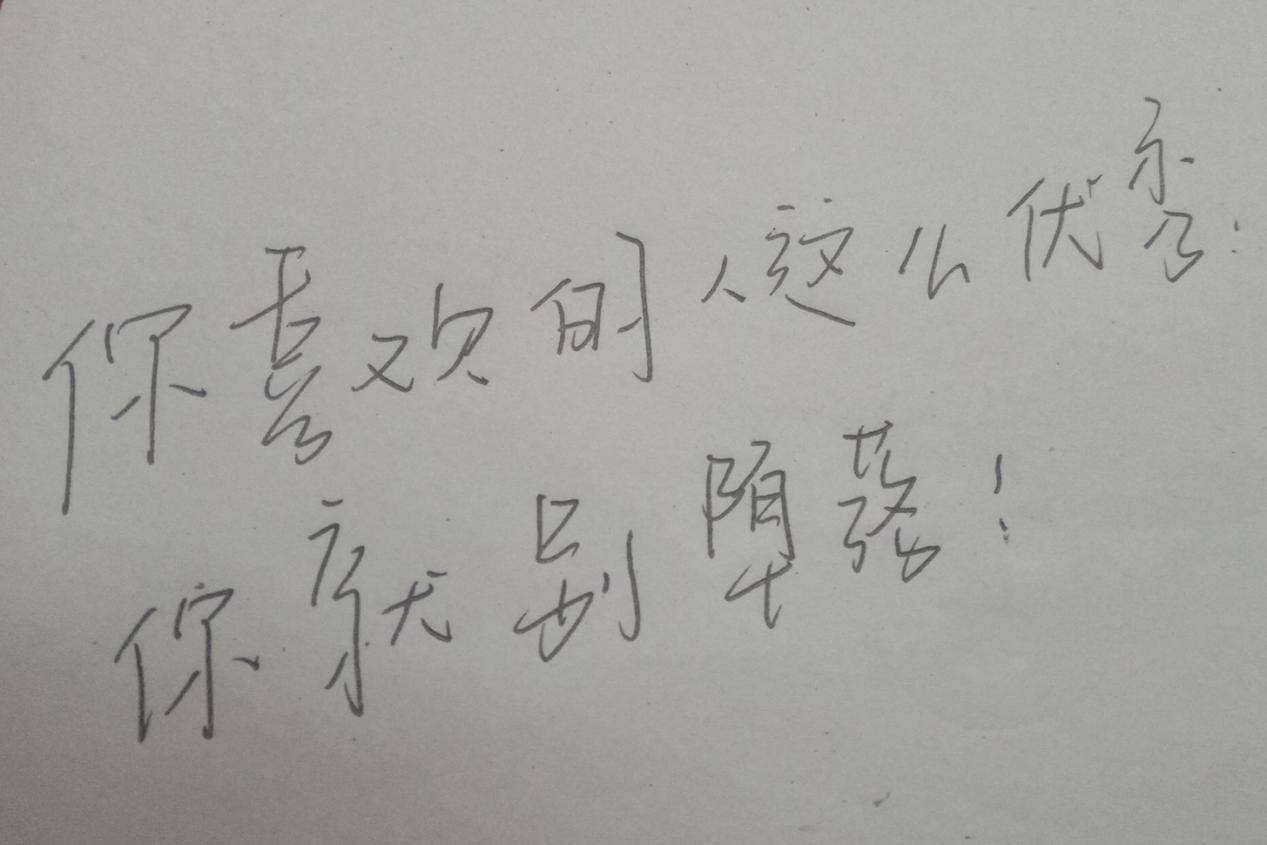 你喜欢的人这么优秀:
你就别堕落!